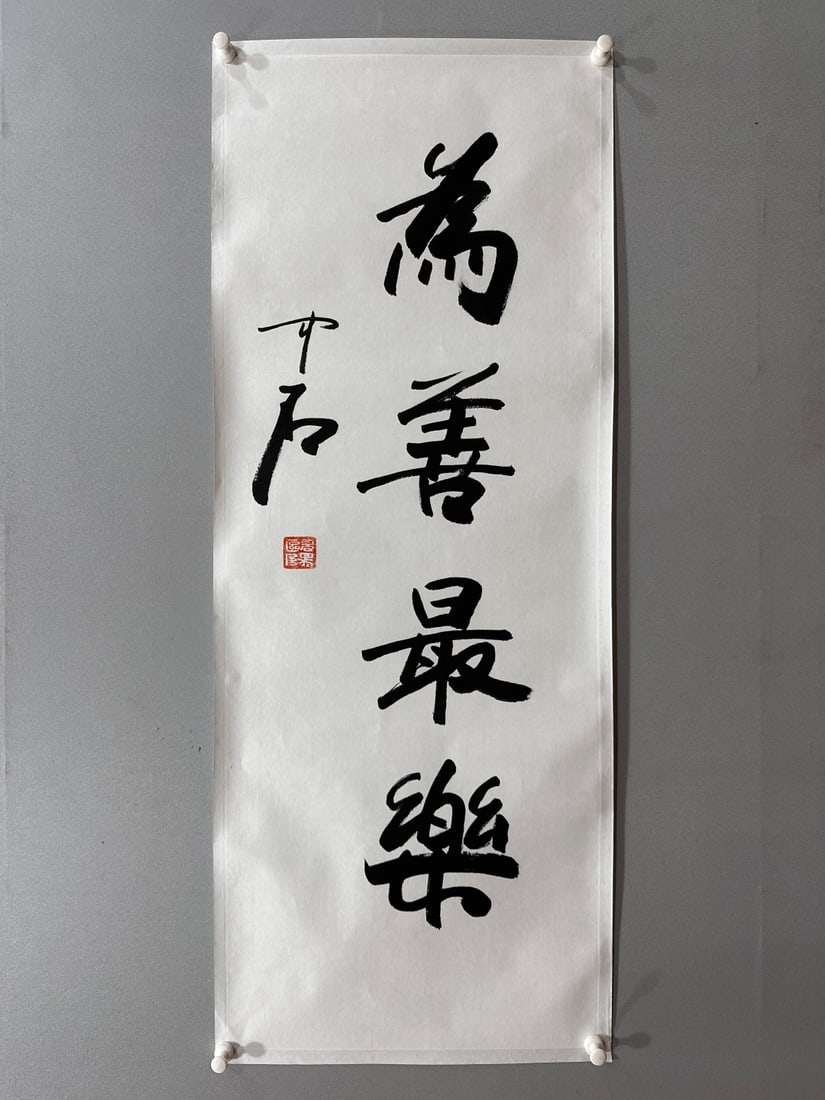 為善最樂
中石